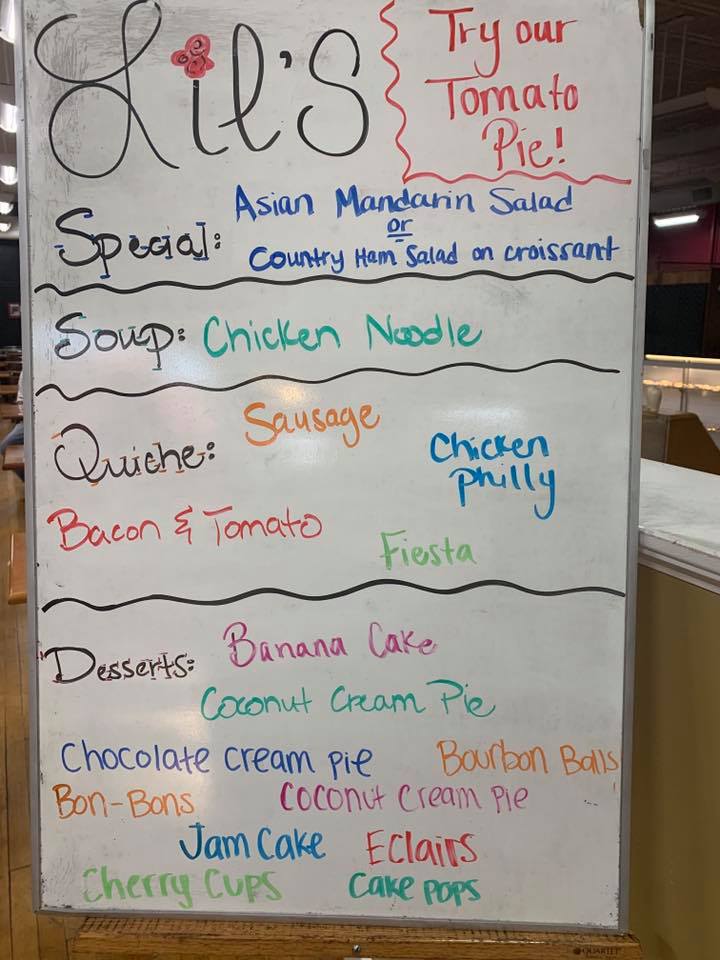 Lil's
Try our
Tomato
Pie!
Special: Asian Mandarin Salad
or
Country Ham Salad on croissant
Soup: Chicken Noodle
Quiche: Sausage
Chicken
Philly
Bacon & Tomato
Fiesta
Desserts: Banana Cake
Coconut Cream Pie
Chocolate cream pie Bourbon Balls
Bon-Bons Coconut Cream Pie
Jam Cake Eclairs
Cherry Cups Cake pops
QUARTET